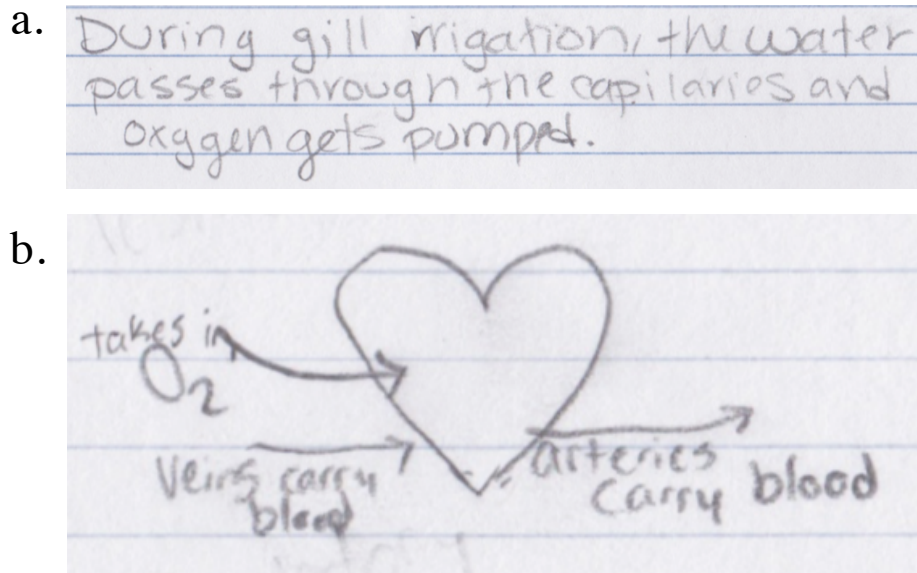 a.
During gill irrigation, the water
passes through the capilaries and
oxygen gets pumped.
b.
takes in
O2
Veins carry
blood
arteries
carry blood